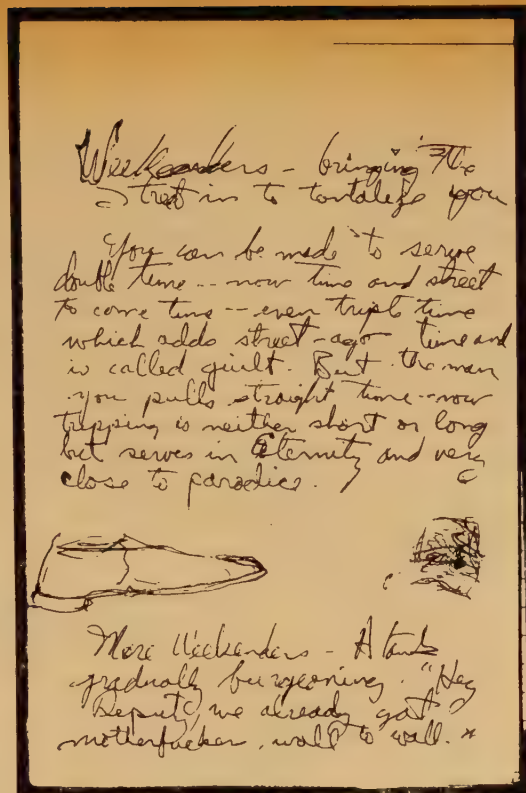 Weekenders - bringing the
street in to tantalize you
You can be made to serve
double time -- now time and street
to come time -- even triple time
which adds street-ago time and
is called guilt. But the man
you pulls straight time -- now
tripping is neither short or long
but serves in Eternity and very
close to paradice.
More Weekenders - A tank
gradually burgeoning. "Hey
Deputy, we already got
motherfucker, wall to wall."